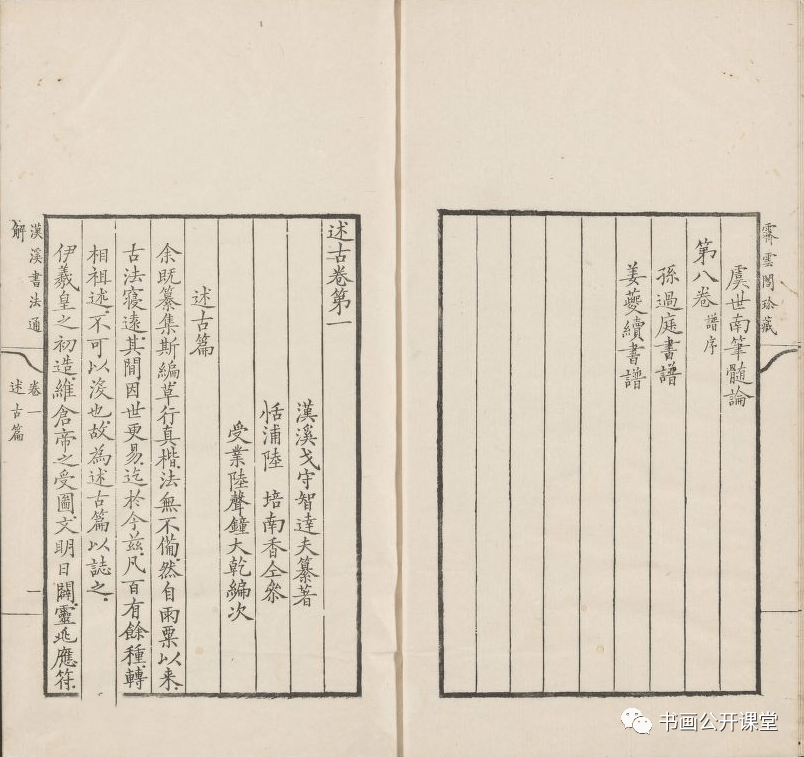 霽雲閣珍藏
虞世南筆髓論
第八卷 譜序
孫過庭書譜
姜夔續書譜
述古卷第一
漢溪戈守智達夫纂著
恬浦陸 培南香仝叅
受業陸聲鐘大乾編次
述古篇
余既纂集斯編草行真楷法無不備然自雨粟以来
古法寖遠其間因世更易迄於今兹凡百有餘種轉
相祖述不可以没也故為述古篇以誌之
伊羲皇之初造維倉帝之受圖文明日闢靈兆應符
漢溪書法通解
卷一
述古篇
一
书画公开课堂